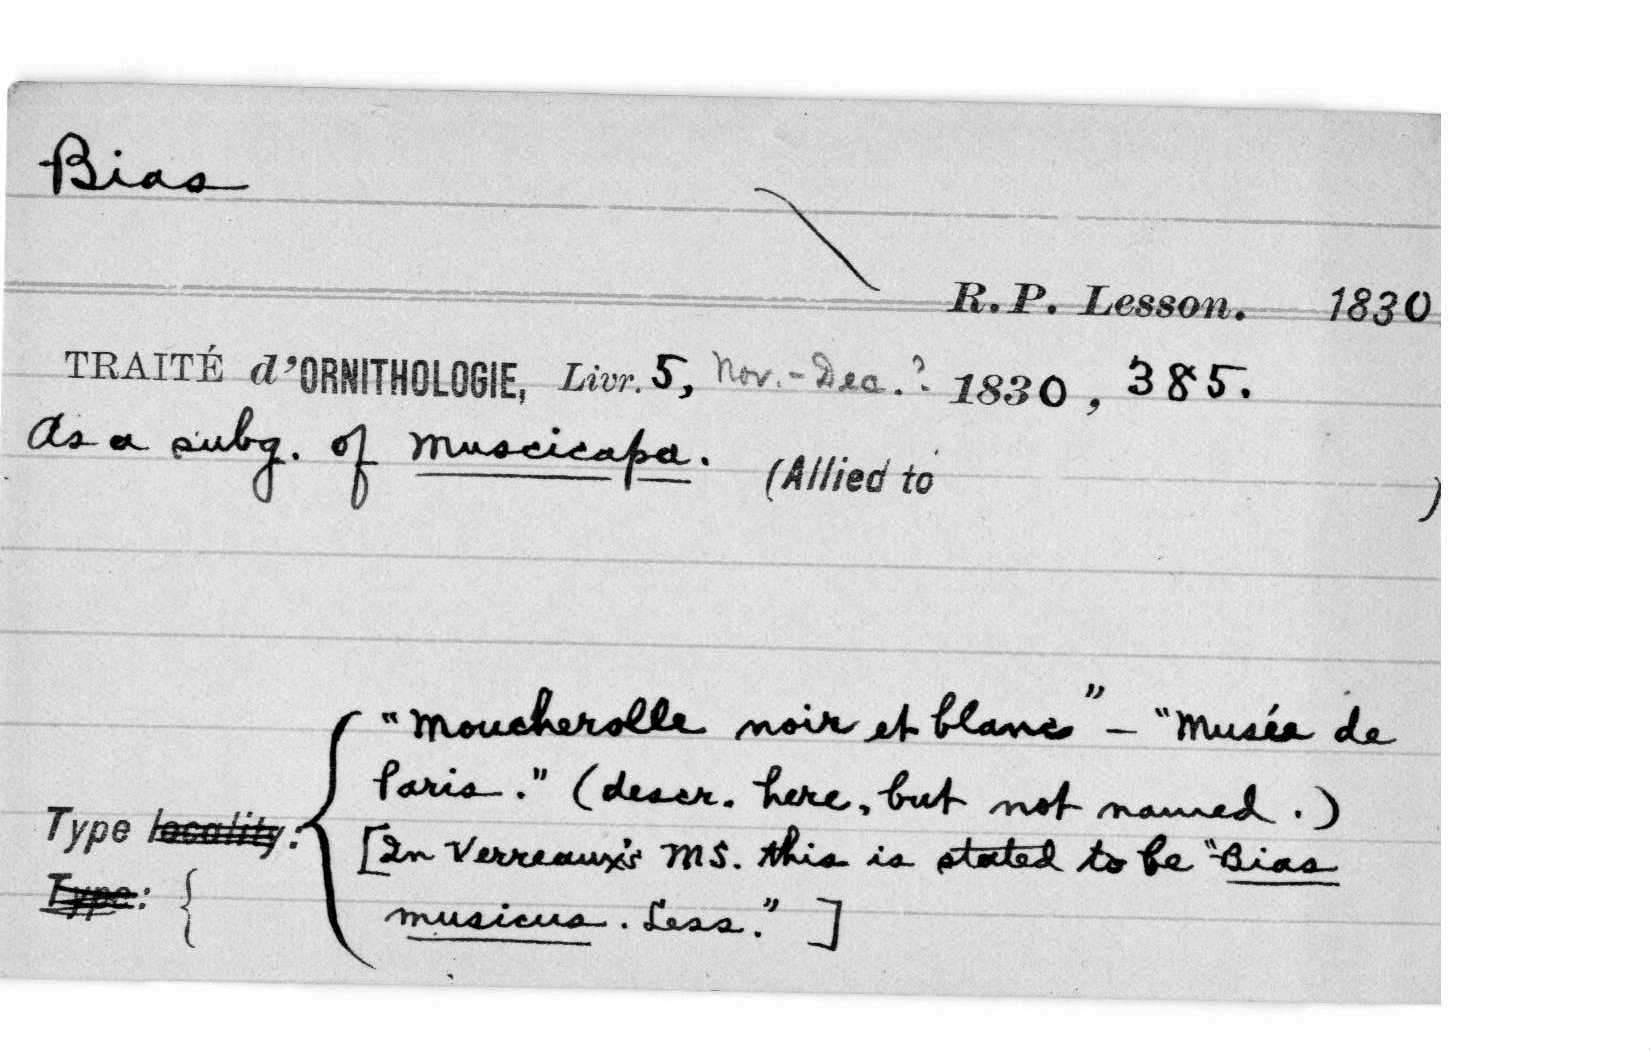 Bias
R. P. Lesson. 1830
TRAITÉ d'ORNITHOLOGIE, Livr. 5, Nov.-Dec.? 1830, 385.
As a subg. of Muscicapa. (Allied to )
"Moucherolle noir et blanc" – "Musée de
Paris." (descr. here, but not named.)
Type locality:
[In Verreaux's MS. this is stated to be "Bias
Type: {
musicus. Less."]